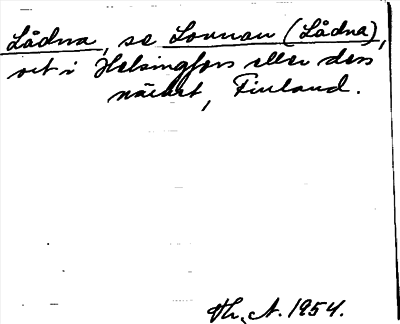 Lådna, se Lounau (Lådna),
ort i Helsingfors eller dess
närhet, Finland.
Th. A. 1954.